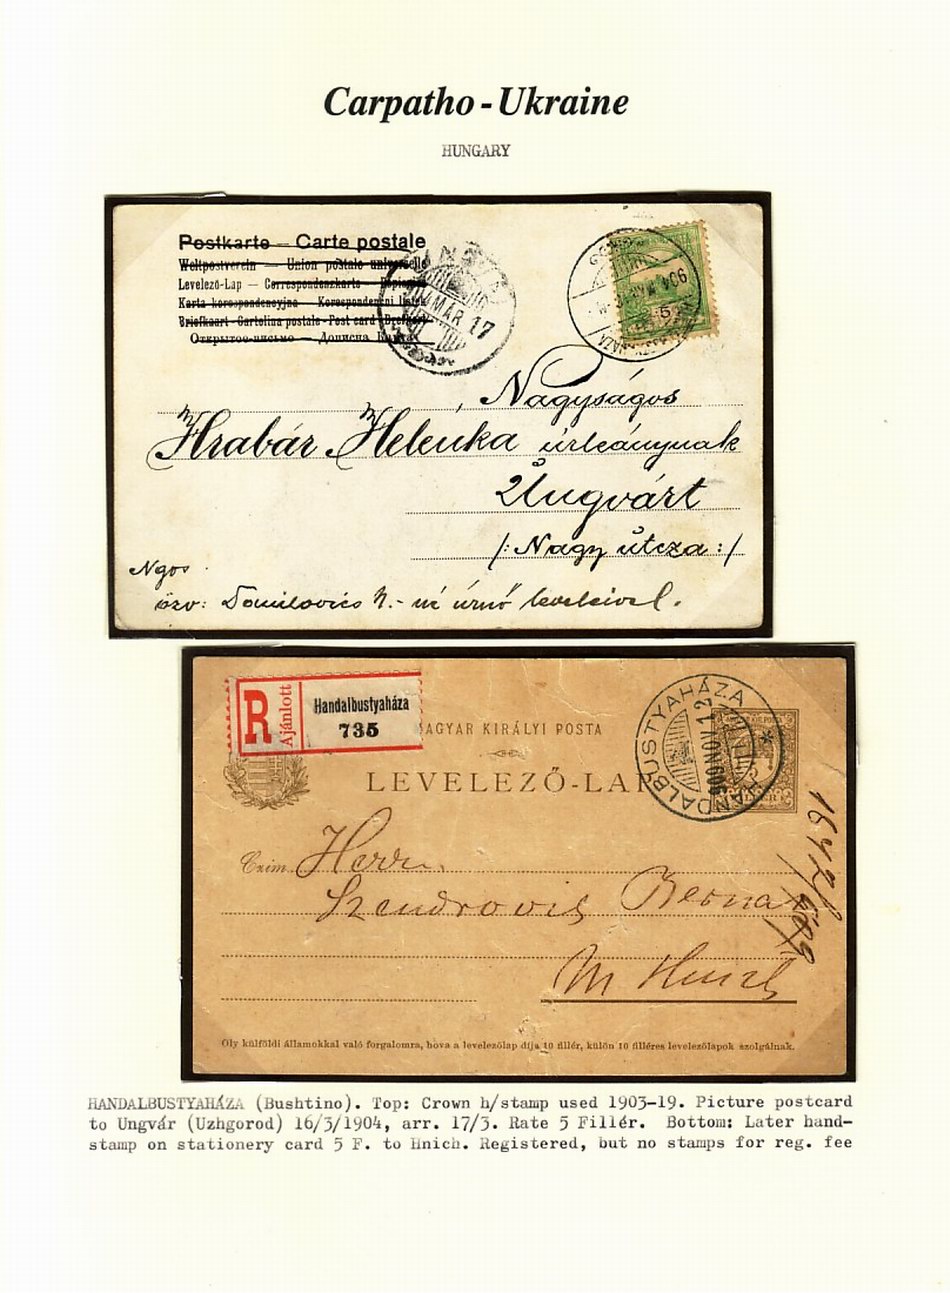 Carpatho - Ukraine
HUNGARY
Postkarte — Carte postale
Weltpostverein — Union postale universelle
Levelező-Lap — Correspondenzkarte —
Karta korespondencyjna — Korespondenční lístek
Briefkaart - Cartolina postale - Post card - Brefkort
Открытое письмо — Дописна
904 MAR 17
904 MAR
5
Nagyságos
Hrabár Helenka úrleánynak
Ungvárt
/: Nagy útcza :/
Ngos
özv: N.-né úrnő leveleivel.
R
Ajánlott
Handalbustyaháza
735
MAGYAR KIRÁLYI POSTA
LEVELEZŐ-LAP
HANDALBUSTYAHÁZA
909 NOV 12
Czim
Herrn
Szendrovis Berna
M
Oly külföldi államokkal való forgalomra, hova a levelezőlap díja 10 fillér, külön 10 filléres levelezőlapok szolgálnak.
HANDALBUSTYAHÁZA (Bushtino). Top: Crown h/stamp used 1903-19. Picture postcard
to Ungvár (Uzhgorod) 16/3/1904, arr. 17/3. Rate 5 Fillér. Bottom: Later hand-
stamp on stationery card 5 F. to Hnich. Registered, but no stamps for reg. fee